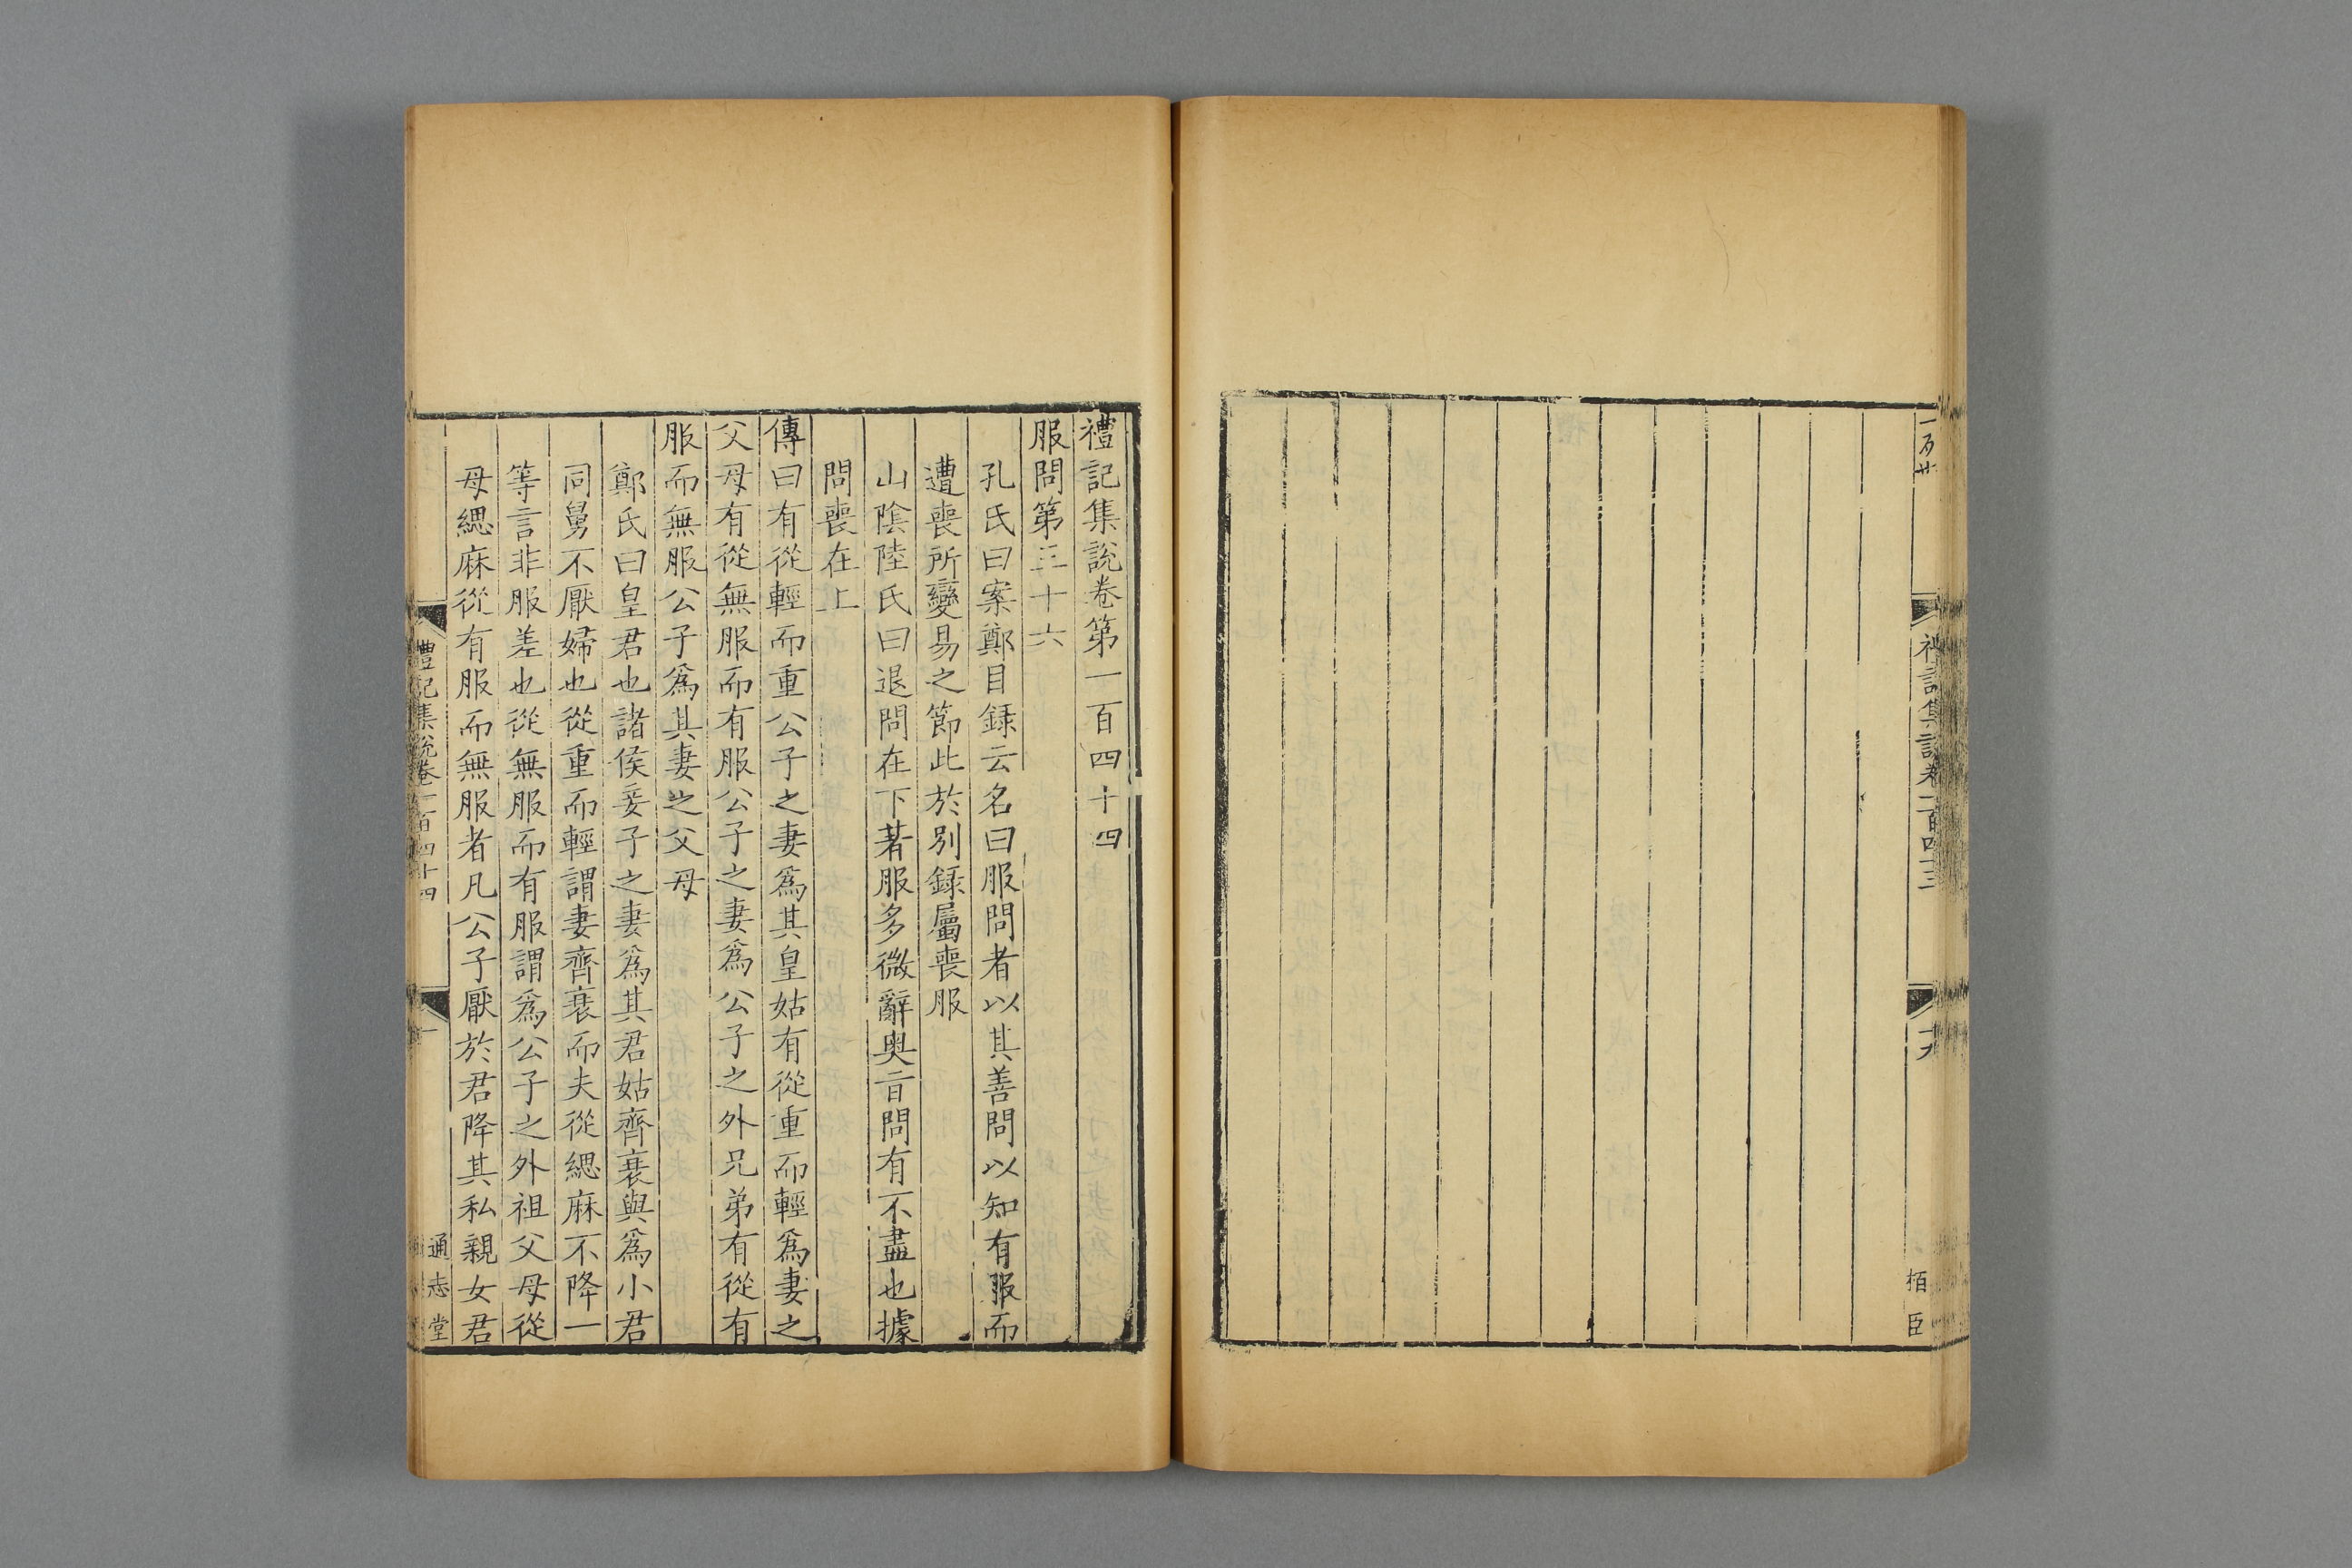 禮記集說卷一百四十三
十九
栢臣
禮記集說卷第一百四十四
服問第三十六
孔氏曰案鄭目録云名曰服問者以其善問以知有服而
遭喪所變易之節此於別録屬喪服
山陰陸氏曰退問在下著服多微辭奥㫖問有不盡也據
問喪在上
傳曰有從輕而重公子之妻爲其皇姑有從重而輕爲妻之
父母有從無服而有服公子之妻爲公子之外兄弟有從有
服而無服公子爲其妻之父母
鄭氏曰皇君也諸侯妾子之妻爲其君姑齊衰與爲小君
同舅不厭婦也從重而輕謂妻齊衰而夫從緦麻不降一
等言非服差也從無服而有服謂爲公子之外祖父母從
母緦麻從有服而無服者凡公子厭於君降其私親女君
禮記集說卷一百四十四
一
通志堂